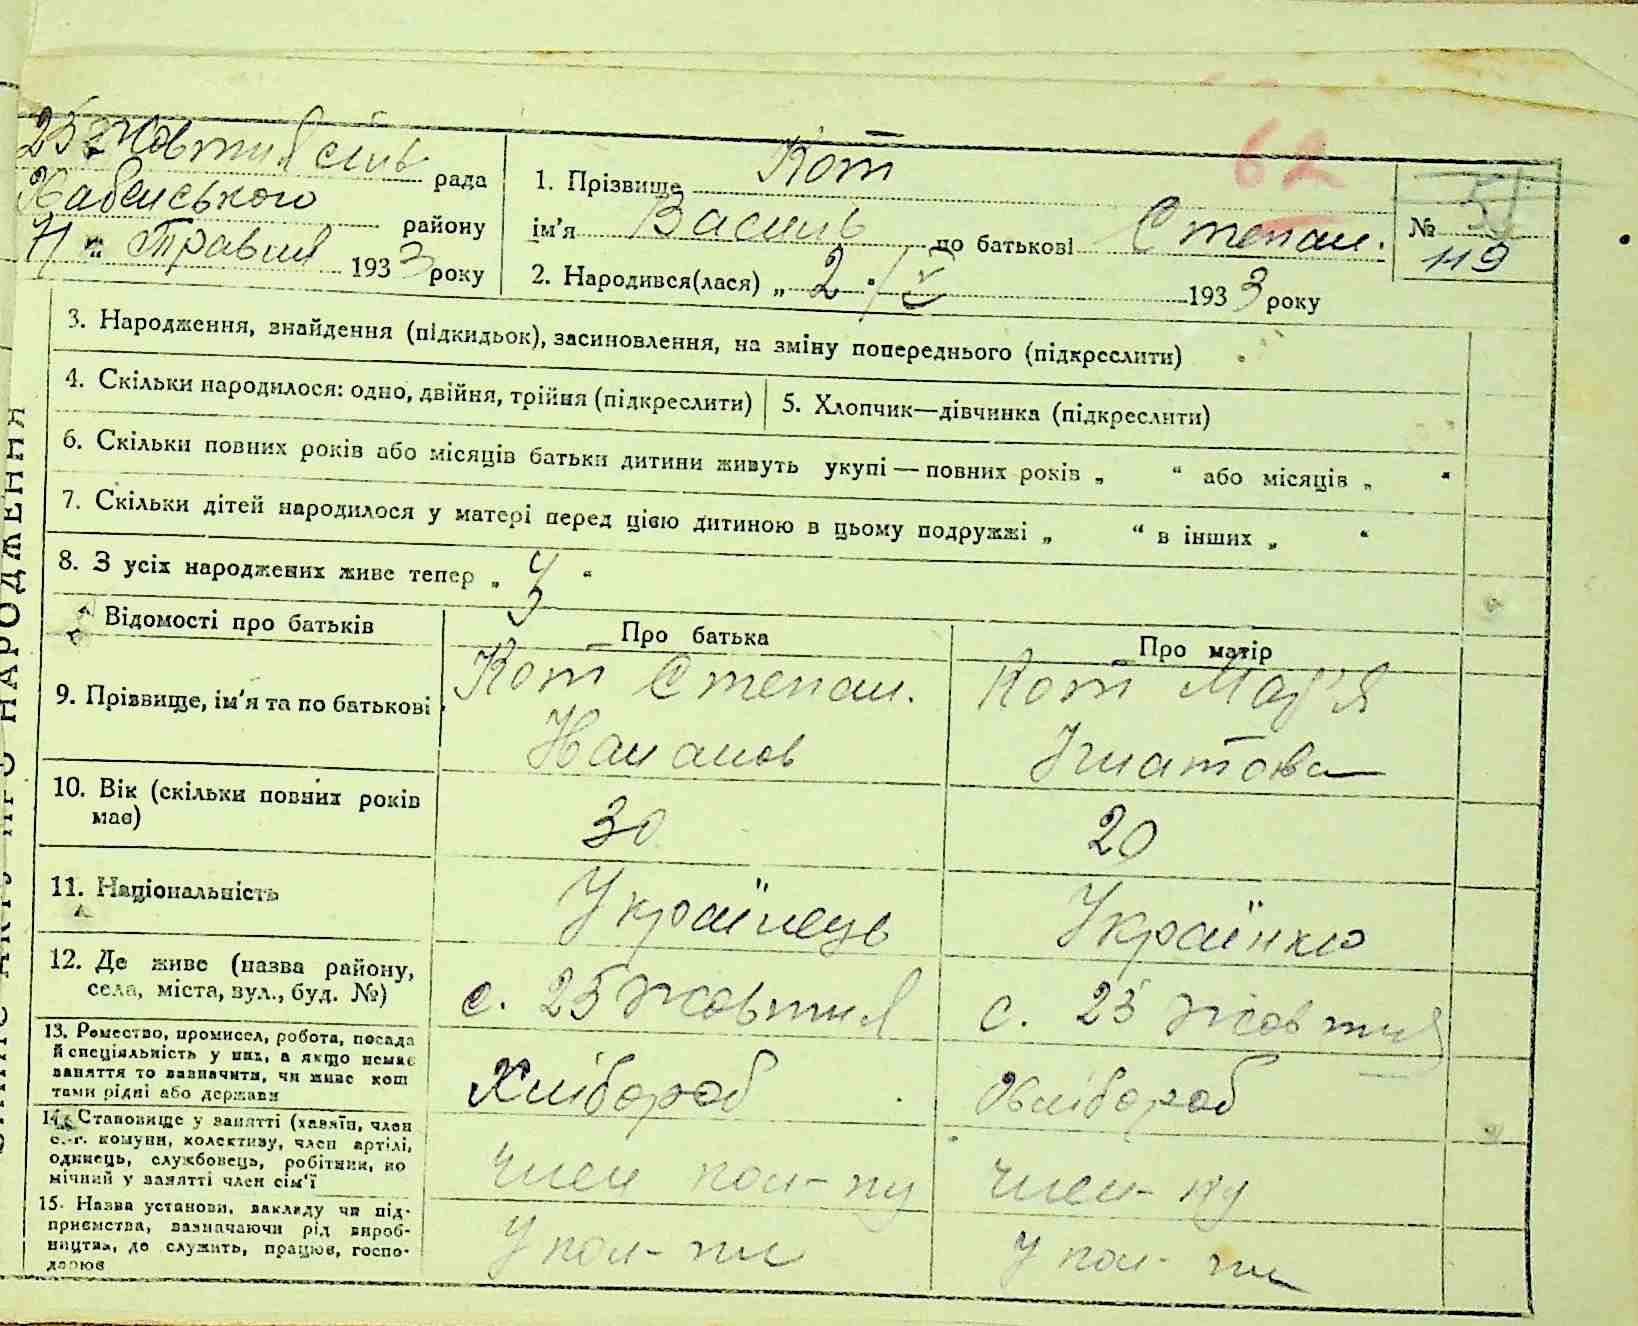 62
25 Жовтня сіль рада
Хабенського району
" Травня 1933 року
1. Прізвище Кот
ім'я Василь по батькові Степан.
2. Народився(лася) „ 2 “ V 1933 року
№ 51
119
3. Народження, знайдення (підкидьок), засиновлення, на зміну попереднього (підкреслити)
4. Скільки народилося: одно, двійня, трійня (підкреслити)
5. Хлопчик—дівчинка (підкреслити)
6. Скільки повних років або місяців батьки дитини живуть укупі — повних років „ “ або місяців „ “
7. Скільки дітей народилося у матері перед цією дитиною в цьому подружжі „ “ в інших „ “
8. З усіх народжених живе тепер „ 3 “
Відомості про батьків
Про батька
Про матір
9. Прізвище, ім'я та по батькові
Кот Степан.
Кот Мар'я
Ігнатова
10. Вік (скільки повних років
має)
30
20
11. Національність
Українець
Українка
12. Де живе (назва району,
села, міста, вул., буд. №)
с. 25 Жовтня
с. 25 Жовтня
13. Ремество, промисел, робота, посада
й спеціяльність у них, а якщо немає
заняття то зазначити, чи живе кош
тами рідні або держави
Хлібороб
Хлібороб
14. Становище у занятті (хазяїн, член
с.-г. комуни, колективу, член артілі,
одинець, службовець, робітник, по
мічний у занятті член сім'ї
член кол-пу
член- пу
15. Назва установи, закладу чи під-
приємства, зазначаючи рід вироб-
ництва, де служить, працює, госпо-
дарює
У кол-пі
У кол-пі